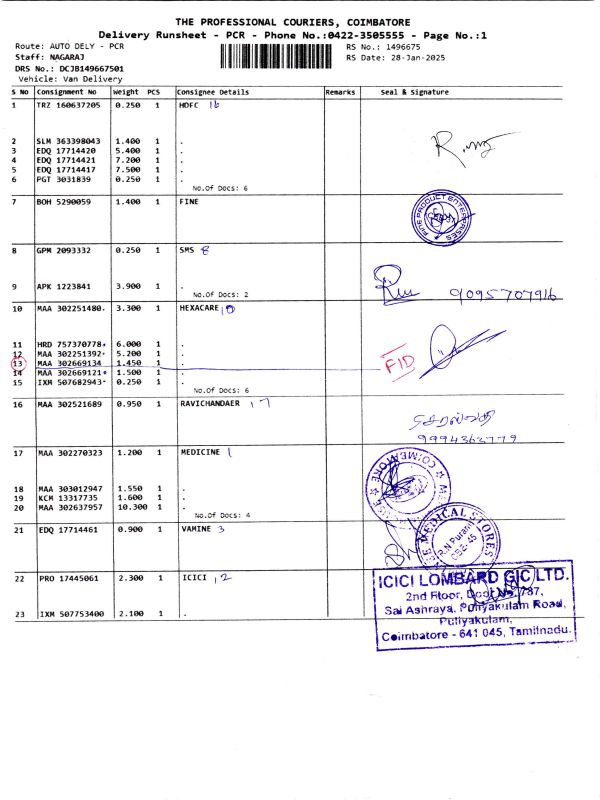 THE PROFESSIONAL COURIERS, COIMBATORE
Delivery Runsheet - PCR - Phone No.:0422-3505555 - Page No.:1
Route: AUTO DELY - PCR
RS No.: 1496675
Staff: NAGARAJ
RS Date: 28-Jan-2025
DRS No.: DCJB149667501
Vehicle: Van Delivery
S No Consignment No Weight PCS Consignee Details Remarks Seal & Signature
1 TRZ 160637205 0.250 1 HDFC 16
2 SLM 363398043 1.400 1 .
3 EDQ 17714420 5.400 1 .
4 EDQ 17714421 7.200 1 .
5 EDQ 17714417 7.500 1 .
6 PGT 3031839 0.250 1 .
No.Of Docs: 6
7 BOH 5290059 1.400 1 FINE
FINE PRODUCT ENTERPRISES
8 GPM 2093332 0.250 1 SMS 8
9 APK 1223841 3.900 1 .
No.Of Docs: 2
9095707916
10 MAA 302251480 3.300 1 HEXACARE 10
11 HRD 757370778 6.000 1 .
12 MAA 302251392 5.200 1 .
13 MAA 302669134 1.450 1 .
FID
14 MAA 302669121 1.500 1 .
15 IXM 507682943 0.250 1 .
No.Of Docs: 6
16 MAA 302521689 0.950 1 RAVICHANDAER 17
9994363779
17 MAA 302270323 1.200 1 MEDICINE 1
COIMBATORE
18 MAA 303012947 1.550 1 .
19 KCM 13317735 1.600 1 .
20 MAA 302637957 10.300 1 .
No.Of Docs: 4
21 EDQ 17714461 0.900 1 VAMINE 3
MEDICAL STORES
R.N Puram
CBE-45
22 PRO 17445061 2.300 1 ICICI 2
23 IXM 507753400 2.100 1 .
ICICI LOMBARD GIC LTD.
2nd Floor, Door No. 787,
Sai Ashraya, Puliyakulam Road,
Puliyakulam,
Coimbatore - 641 045, Tamilnadu.